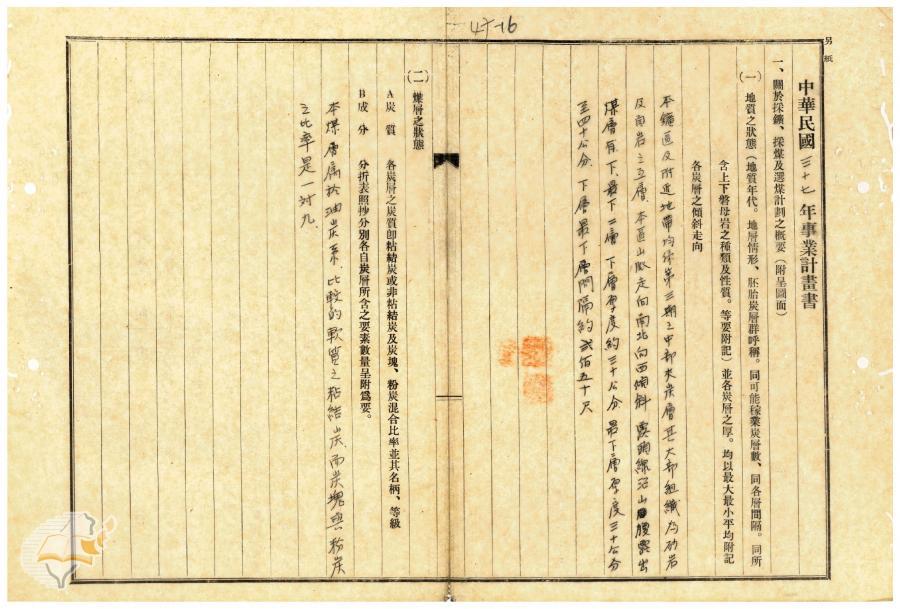 47-16
另紙
中華民國三十七年事業計畫書
一、關於採鑛、採煤及選煤計劃之概要（附呈圖面）
（一）地質之狀態（地質年代。地層情形、胚胎炭層群呼稱。同可能稼業炭層數、同各層間隔。同所
含上下磐母岩之種類及性質。等要附記）並各炭層之厚。均以最大最小平均附記
各炭層之傾斜走向
本鑛區及附近地帶均係第三期之中部夾炭層其大部組織為砂岩
及南岩之互層、本區山脈走向南北向西傾斜露頭線沿山腹露出
煤層有下、最下二層、下層厚度約三十公分、最下層厚度三十公分
至四十公分、下層最下層間隔約貳佰五十尺
（二）煤層之狀態
A 炭質 各炭層之炭質卽粘結炭或非粘結炭及炭塊、粉炭混合比率並其名柄、等級
B 成分 分折表照抄分別各自炭層所含之要素數量呈附爲要。
本煤層屬於油炭系、比較的軟質之粘結炭、而炭塊與粉炭
之比率是一対九、